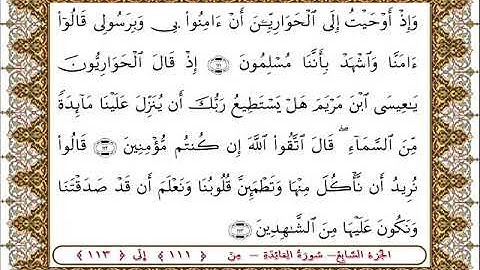 وَإِذْ أَوْحَيْتُ إِلَى ٱلْحَوَارِيِّـۧنَ أَنْ ءَامِنُوا۟ بِى وَبِرَسُولِى قَالُوٓا۟
ءَامَنَّا وَٱشْهَدْ بِأَنَّنَا مُسْلِمُونَ ﴿١١١﴾ إِذْ قَالَ ٱلْحَوَارِيُّونَ
يَـٰعِيسَى ٱبْنَ مَرْيَمَ هَلْ يَسْتَطِيعُ رَبُّكَ أَن يُنَزِّلَ عَلَيْنَا مَآئِدَةً
مِّنَ ٱلسَّمَآءِ ۖ قَالَ ٱتَّقُوا۟ ٱللَّهَ إِن كُنتُم مُّؤْمِنِينَ ﴿١١٢﴾ قَالُوا۟
نُرِيدُ أَن نَّأْكُلَ مِنْهَا وَتَطْمَئِنَّ قُلُوبُنَا وَنَعْلَمَ أَن قَدْ صَدَقْتَنَا
وَنَكُونَ عَلَيْهَا مِنَ ٱلشَّـٰهِدِينَ ﴿١١٣﴾
الجزء السابع – سورة المائدة – من ﴿ ١١١ ﴾ إلى ﴿ ١١٣ ﴾